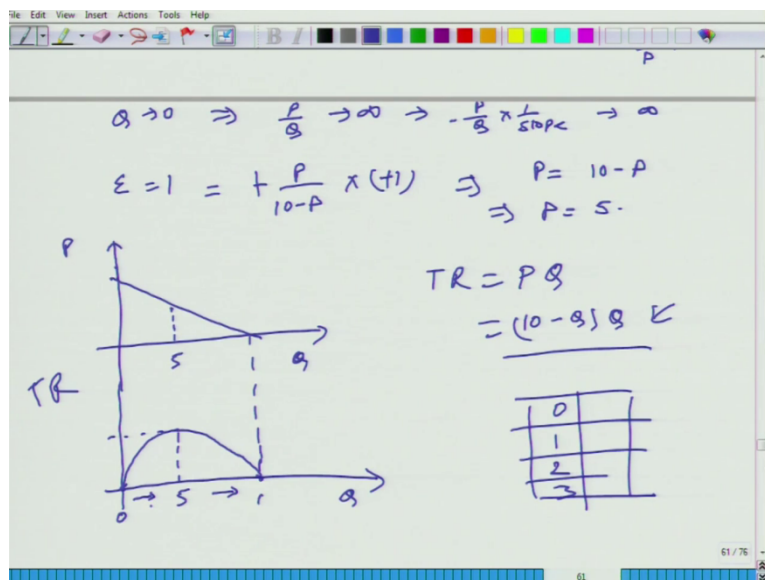 File Edit View Insert Actions Tools Help
B I
P
Q → 0 ⇒ P/Q → ∞ → - P/Q × 1/slope → ∞
ε = 1 = + P/10-P × (+1) ⇒ P = 10 - P
⇒ P = 5.
P
TR = PQ
= (10 - Q) Q
5 Q
TR
0
1
2
3
0 → 5 → Q
61 / 76
61